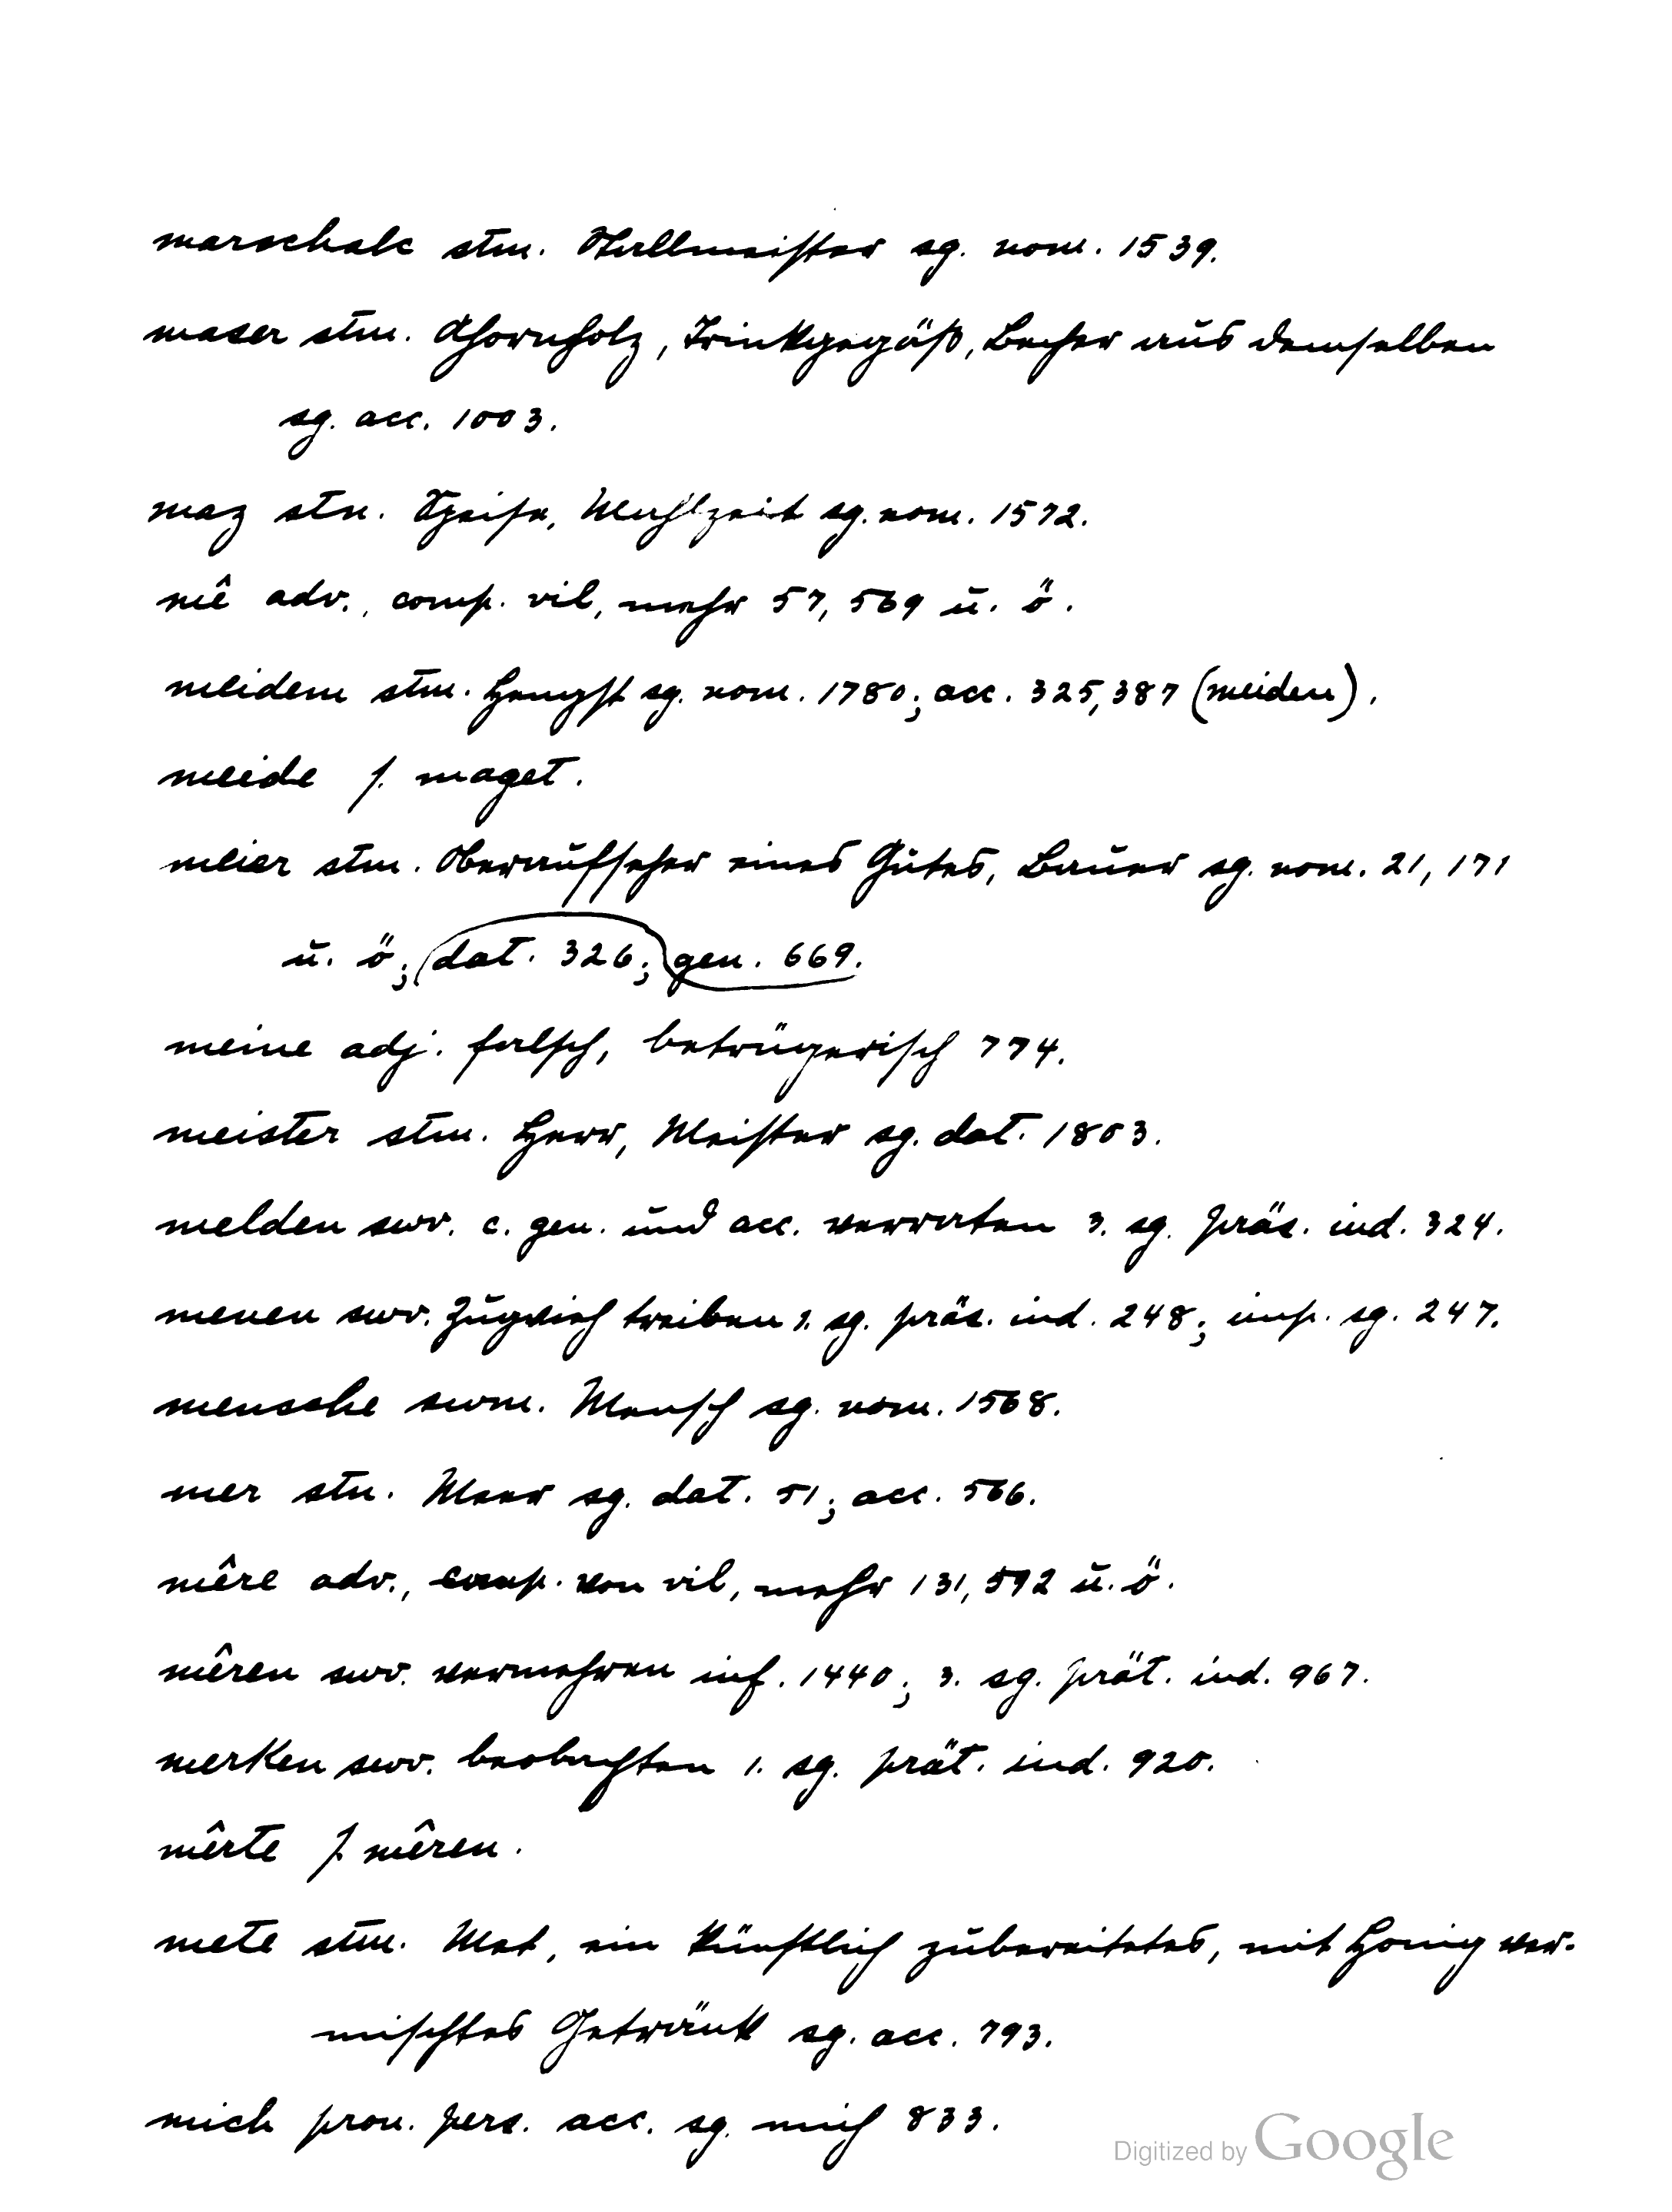 marschalc stm. Stallmeister sg. nom. 1539.
maser stm. Ahornholz, Trinkgegäß, Becher aus demselben
sg. acc. 1003.
maz stn. Speise, Mahlzeit sg. nom. 1572.
mê adv., comp. vil, mehr 57, 569 u. ö.
meidem stm. Hengst sg. nom. 1780; acc. 325, 387 (meiden).
meide s. maget.
meier stm. Oberaufseher eines Gutes, Bauer sg. nom. 21, 171
u. ö; dat. 326; gen. 669.
meine adj. falsch, betrügerisch 774.
meister stm. Herr, Meister sg. dat. 1803.
melden swv. c. gen. und acc. verraten 3. sg. präs. ind. 324.
menen swv. Zugvieh treiben 1. sg. präs. ind. 248; imp. sg. 247.
mensche swm. Mensch sg. nom. 1568.
mer stn. Meer sg. dat. 51; acc. 566.
mêre adv., comp. von vil, mehr 131, 592 u. ö.
mêren swv. vermehren inf. 1440; 3. sg. prät. ind. 967.
merken swv. beobachten 1. sg. prät. ind. 920.
mêrte s. mêren.
mete stm. Met, ein künstlich zubereitetes, mit Honig ver-
mischtes Getränk sg. acc. 793.
mich pron. pers. acc. sg. mich 833.
Digitized by Google